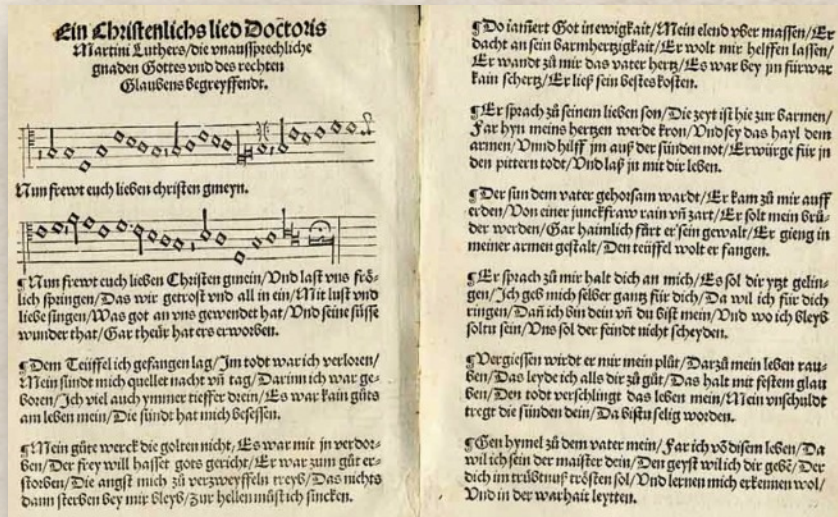 Ein Christenlichs lied Doctoris
Martini Luthers/die vnaussprechliche
gnaden Gottes vnd des rechten
Glaubens begreyffendt.
Nun frewt euch lieben christen gmeyn.
¶Nun frewt euch lieben Christen gmein/Vnd last vns frö-
lich springen/Das wir getrost vnd all in ein/Mit lust vnd
liebe singen/Was got an vns gewendet hat/Vnd seine süsse
wunder that/Gar theür hat ers erworben.
¶Dem Teüffel ich gefangen lag/Im todt war ich verloren/
Mein sündt mich quellet nacht vñ tag/Darinn ich war ge-
boren/Ich viel auch ymmer tieffer drein/Es war kain güts
am leben mein/Die sündt hat mich besessen.
¶Mein güte werck die golten nicht/Es war mit jn verdor-
ben/Der frey will hasset gots gericht/Er war zum güt er-
storben/Die angst mich zü verzweyffeln treyb/Das nichts
dann sterben bey mir bleyb/zur hellen müst ich sincken.
¶Do iam̃ert Got in ewigkait/Mein elend vber massen/Er
dacht an sein barmhertzigkait/Er wolt mir helffen lassen/
Er wandt zü mir das vater hertz/Es war bey jm fürwar
kain schertz/Er ließ sein bestes kosten.
¶Er sprach zü seinem lieben son/Die zeyt ist hie zur barmen/
Far hyn meins hertzen werde kron/Vnd sey das hayl dem
armen/Vnnd hilff jm auß der sünden not/Erwürge für jn
den pittern todt/Vnd laß jn mit dir leben.
¶Der sun dem vater gehorsam wardt/Er kam zü mir auff
erden/Von einer junckfraw rain vñ zart/Er solt mein brü-
der werden/Gar haimlich fürt er sein gewalt/Er gieng in
meiner armen gestalt/Den teüffel wolt er fangen.
¶Er sprach zü mir halt dich an mich/Es sol dir ytzt gelin-
gen/Ich geb mich selber gantz für dich/Da wil ich für dich
ringen/Dañ ich bin dein vñ du bist mein/Vnd wo ich bleyb
soltu sein/Vns sol der feindt nicht scheyden.
¶Vergiessen wirdt er mir mein plüt/Darzü mein leben rau-
ben/Das leyde ich als dir zü güt/Das halt mit festem glau
ben/Den todt verschlingt das leben mein/Mein vnschuldt
tregt die sünden dein/Da bistu selig worden.
¶Gen hymel zü dem vater mein/Far ich vō disem leben/Da
wil ich sein der maister dein/Den geyst wil ich dir gebē/Der
dich im trübtnuß trösten sol/Vnd lernen mich erkennen wol/
Vnd in der warhait leytten.